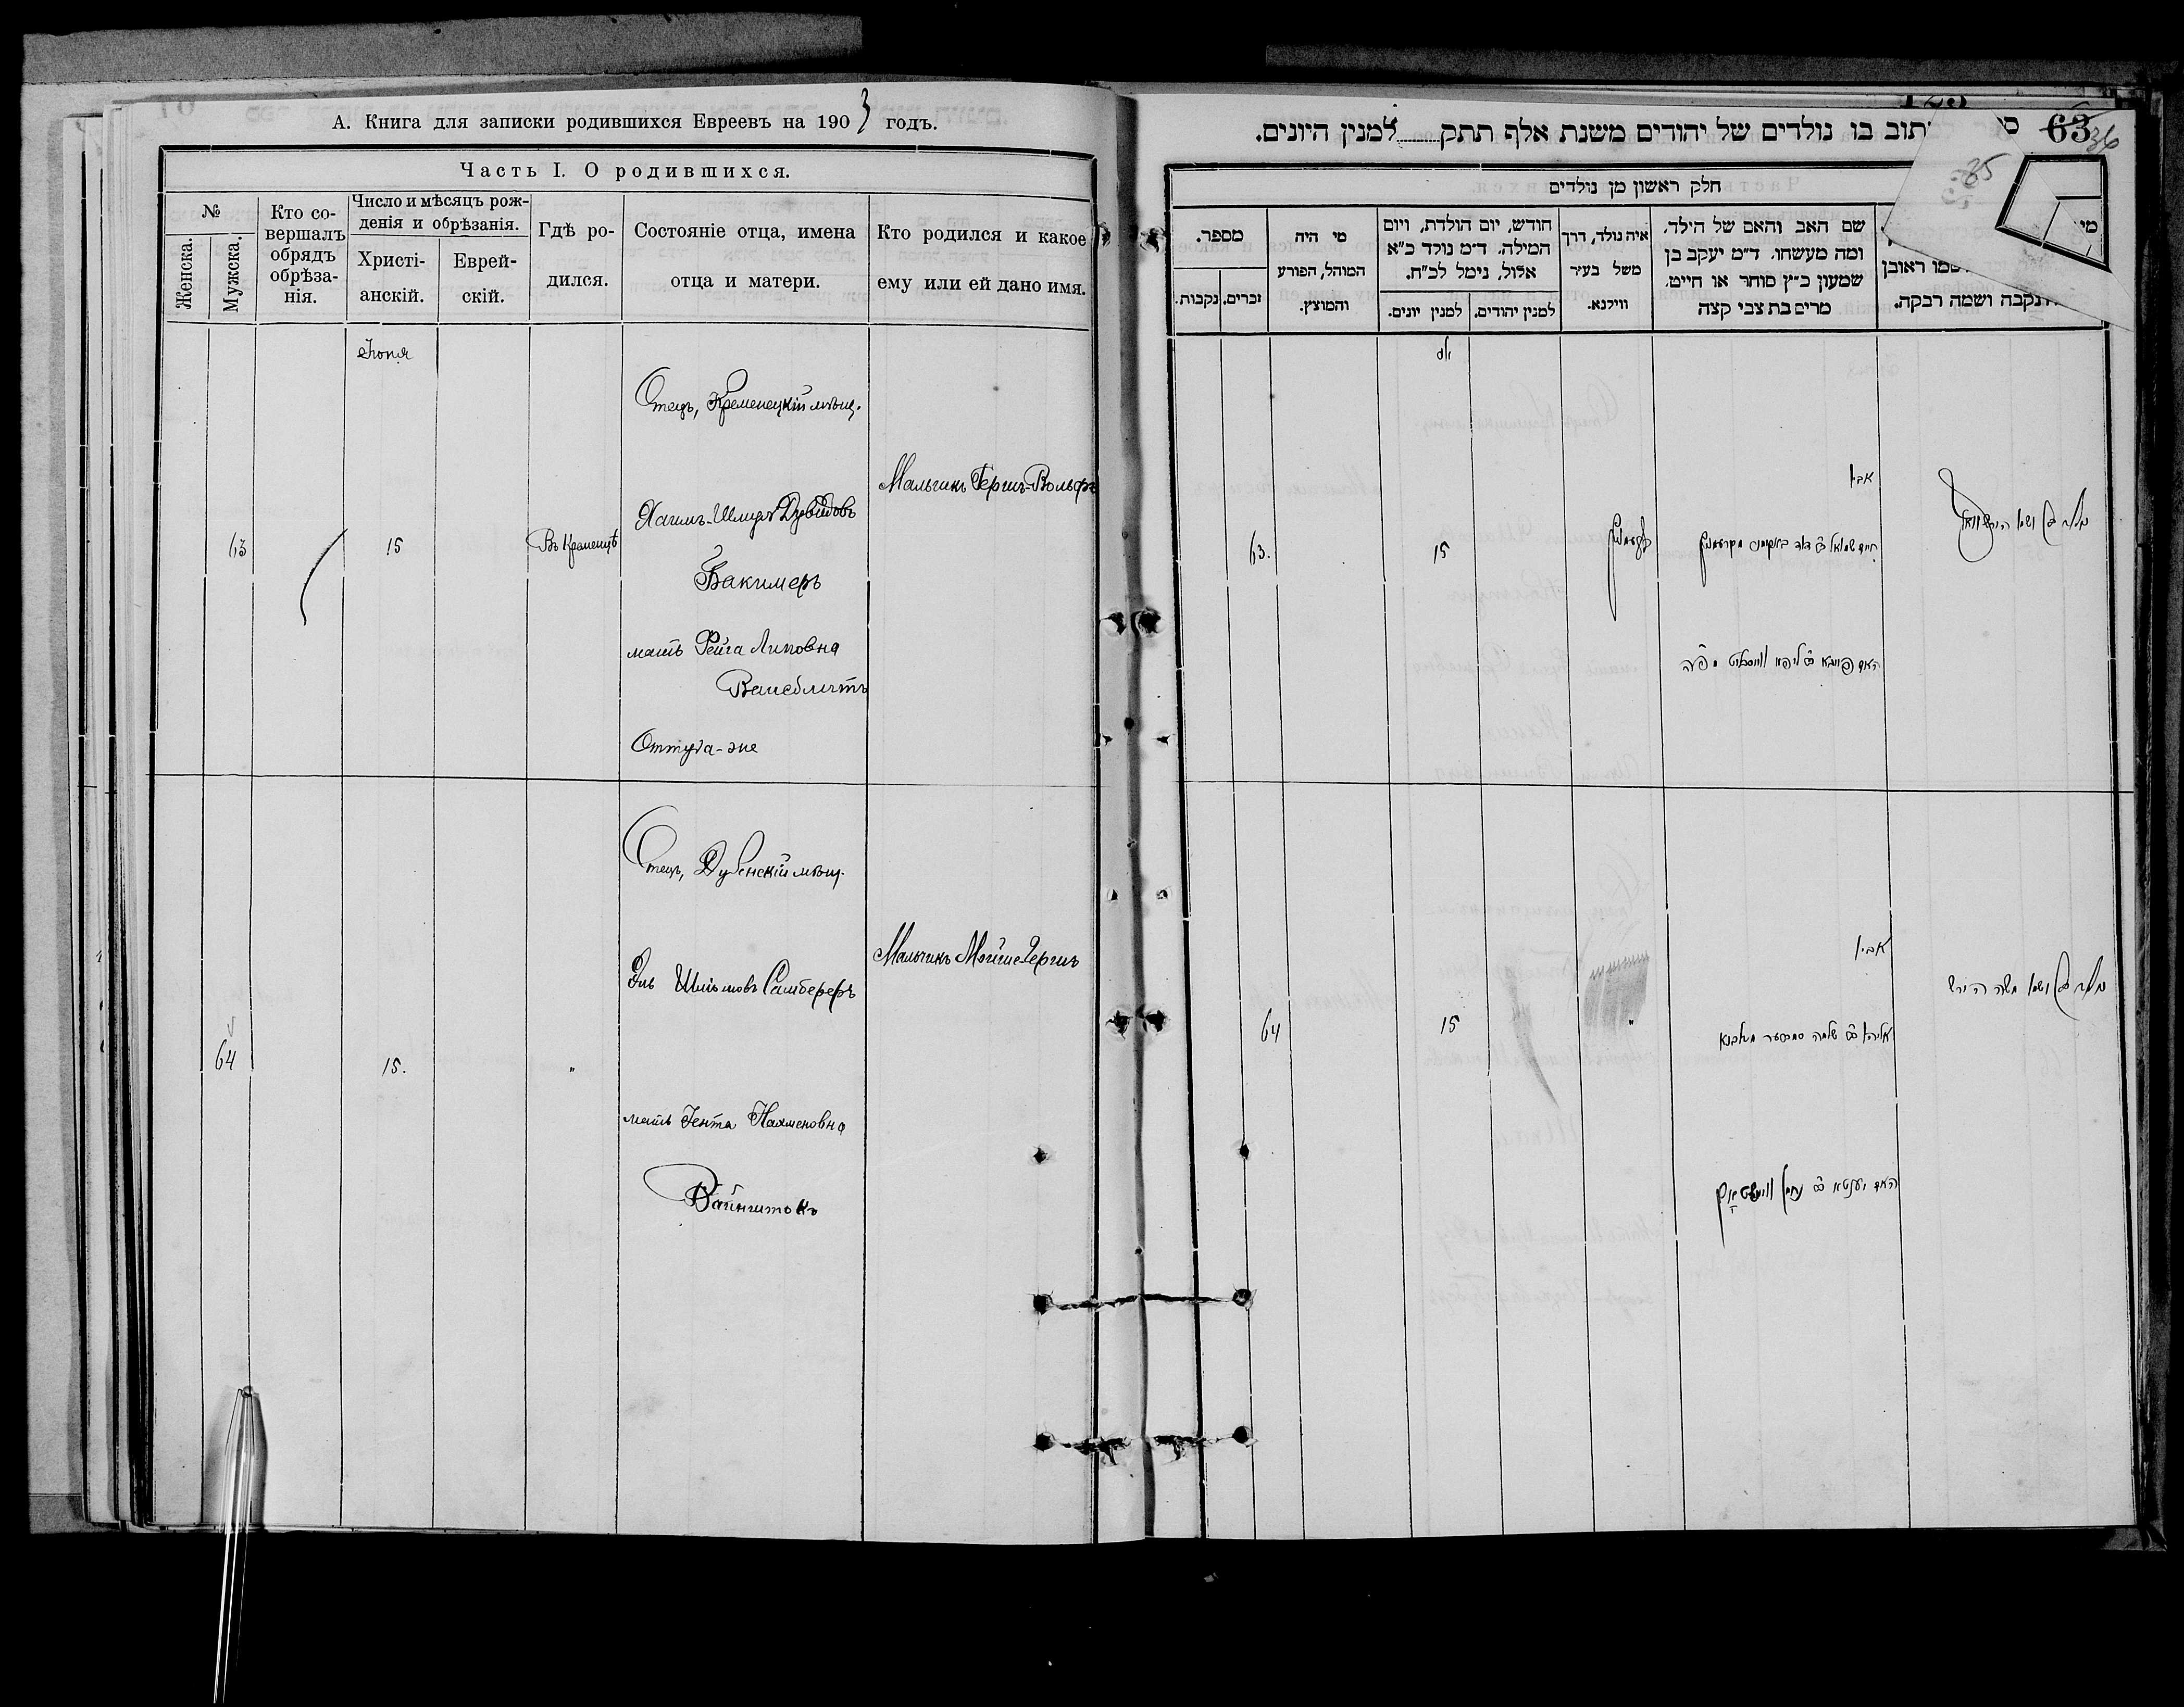 А. Книга для записки родившихся Евреевъ на 1903 годъ.
Часть I. О родившихся.
№
Женска.
Мужска.
Кто со-
вершалъ
обрядъ
обрѣза-
нія.
Число и мѣсяцъ рож-
денія и обрѣзанія.
Христі-
анскій.
Еврей-
скій.
Гдѣ ро-
дился.
Состояніе отца, имена
отца и матери.
Кто родился и какое
ему или ей дано имя.
Іюня
63
15
Въ Кременцѣ
Отецъ, Кременецкій мѣщ.
Хаимъ-Шмуль Дувидовъ
Бакимеръ
мать Фейга Липовна
Вайсблитъ
Оттуда-же
Мальчикъ Гершъ-Вольфъ
64
15.
"
Отецъ, Дубенскій мѣщ.
Эль Шліомовъ Самбереръ
мать Іента Нахменовна
Вайнштокъ
Мальчикъ Мойше-Гершъ
63
36
35
תוב בו נולדים של יהודים משנת אלף תתק למנין היונים.
חלק ראשון מן נולדים
מספר.
זכרים.
נקבות.
מי היה
המוהל, הפורע
והמוצץ.
חודש, יום הולדת, ויום
המילה. ד״מ נולד כ״א
אלול, נימל לכ״ח.
למנין יונים.
למנין יהודים.
איה נולד, דרך
משל בעיר
ווילנא.
שם האב והאם של הילד.
ומה מעשהו. ד״מ יעקב בן
שמעון כ״ץ סוחר או חייט.
מרים בת צבי קצה
מי
שמו ראובן
נקבה ושמה רבקה.
63.
15
אביו
חיים שמואל
האם פייגא
64
15
"
אביו
אליהו שלמה
האם יענטא נחמן וויינשטאק
ושמו משה הירש